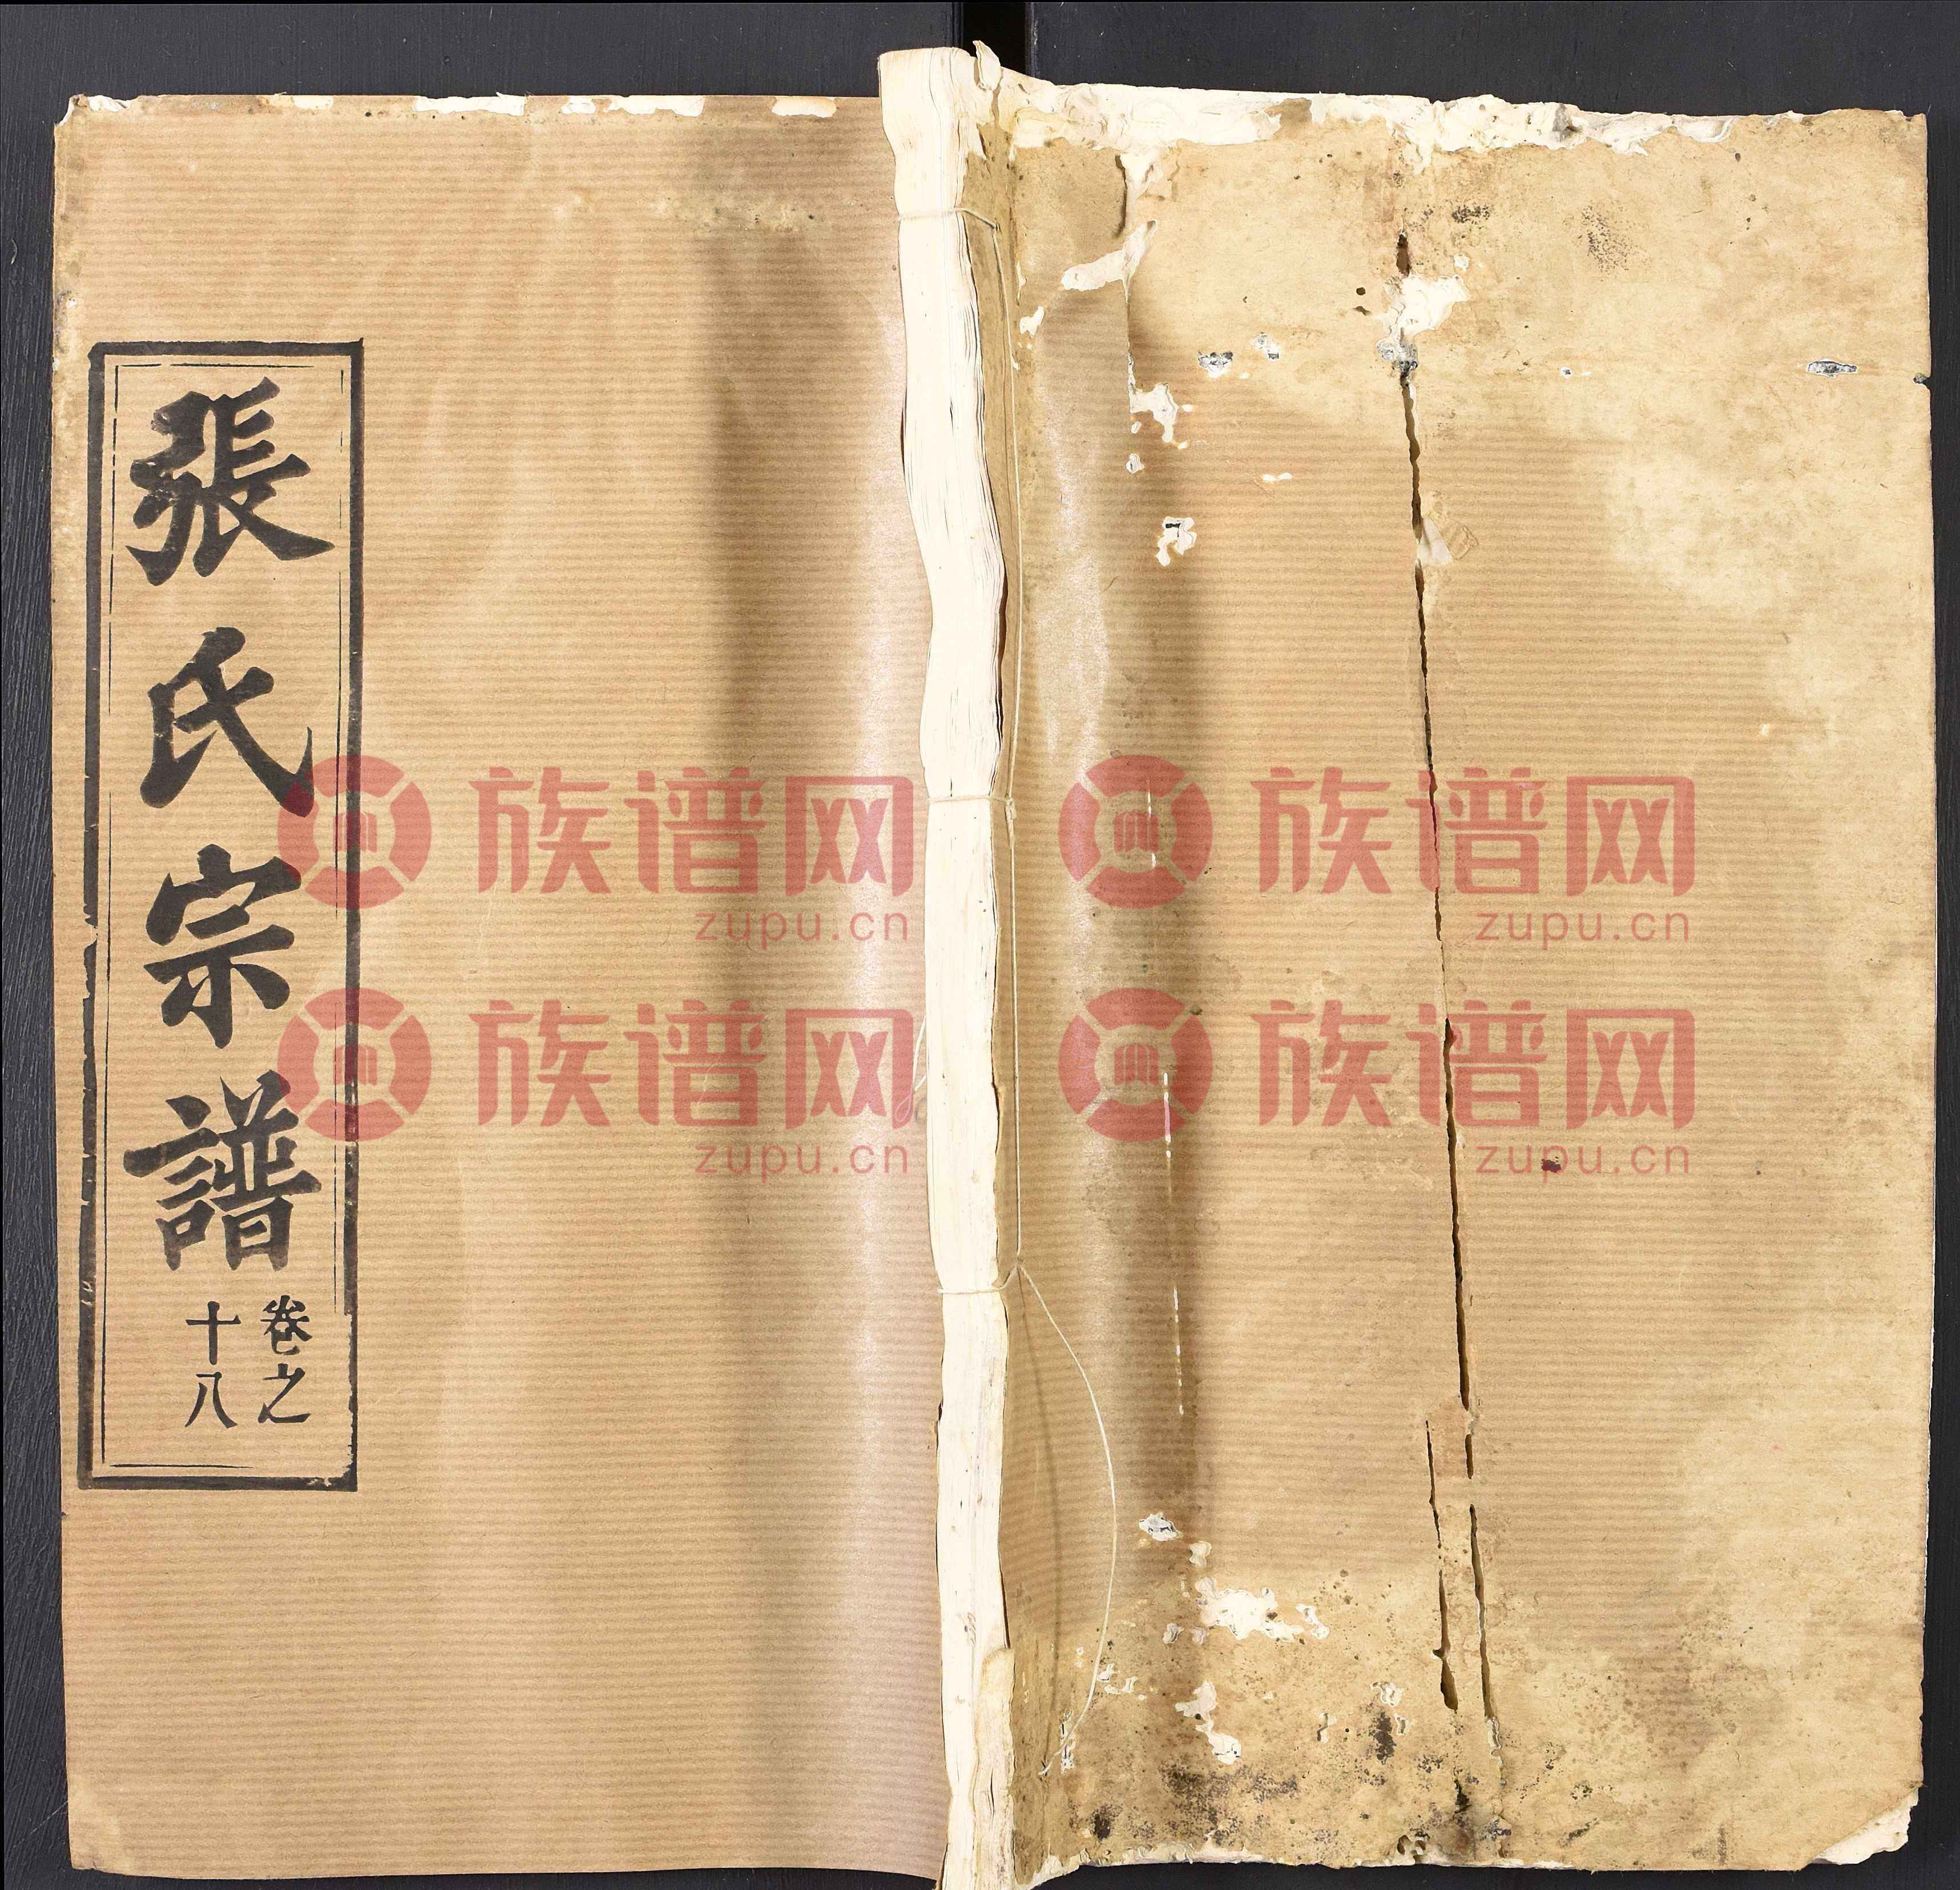 張氏宗譜
卷之
十八
族谱网
zupu.cn
族谱网
zupu.cn
族谱网
zupu.cn
族谱网
zupu.cn